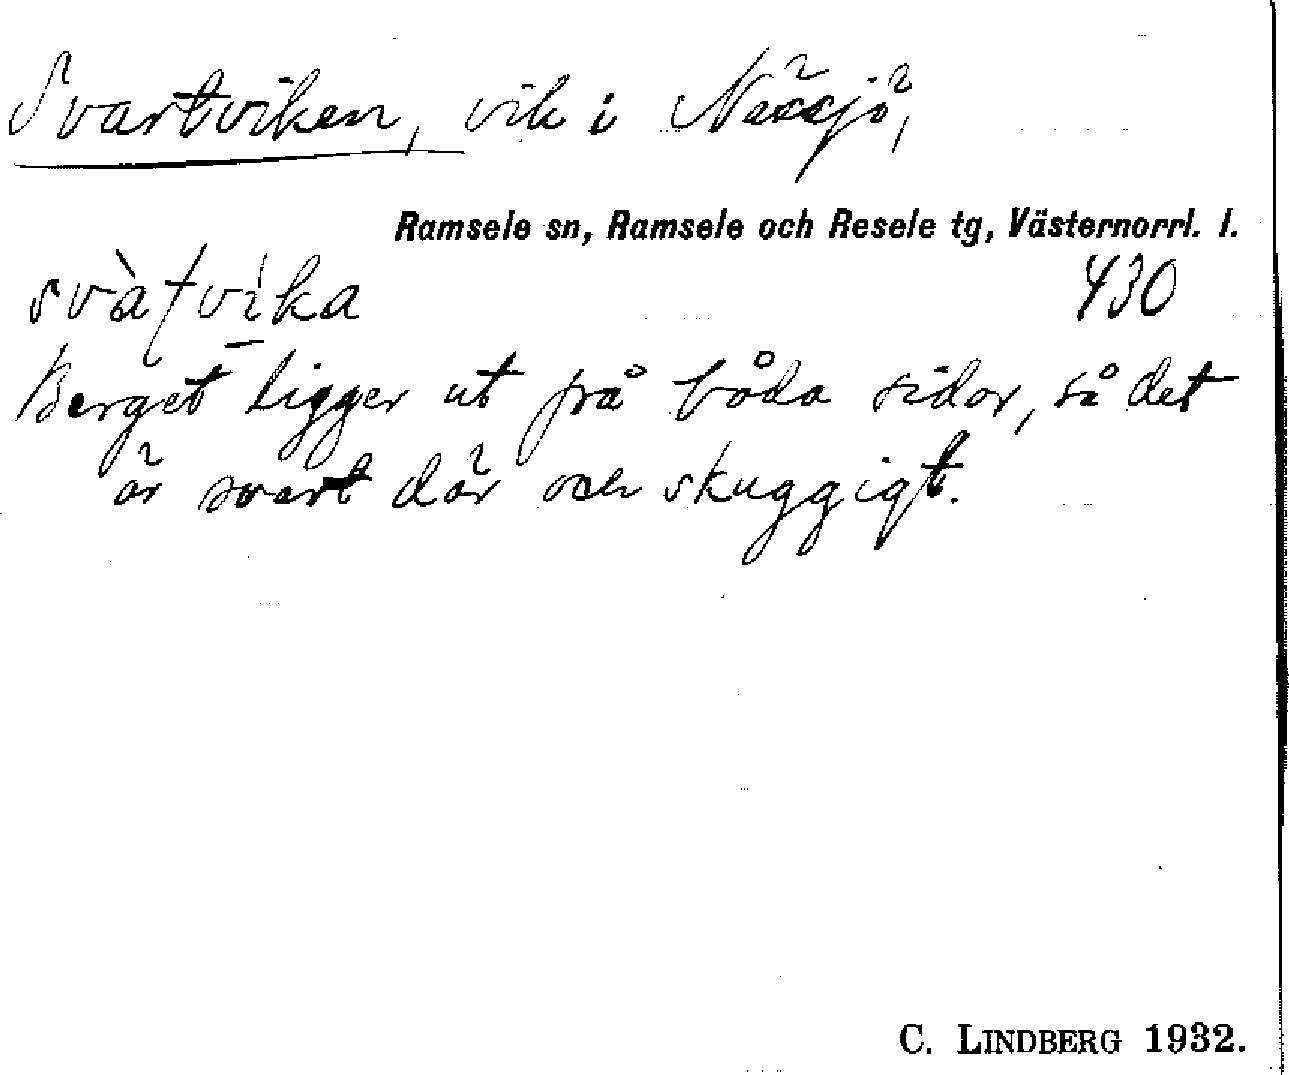 Svartviken, vik i Nässjö,
Ramsele sn, Ramsele och Resele tg, Västernorrl. l.
svàʈvíka 430
Berget ligger ut på båda sidor, så det
är svart där och skuggigt.
C. LINDBERG 1932.